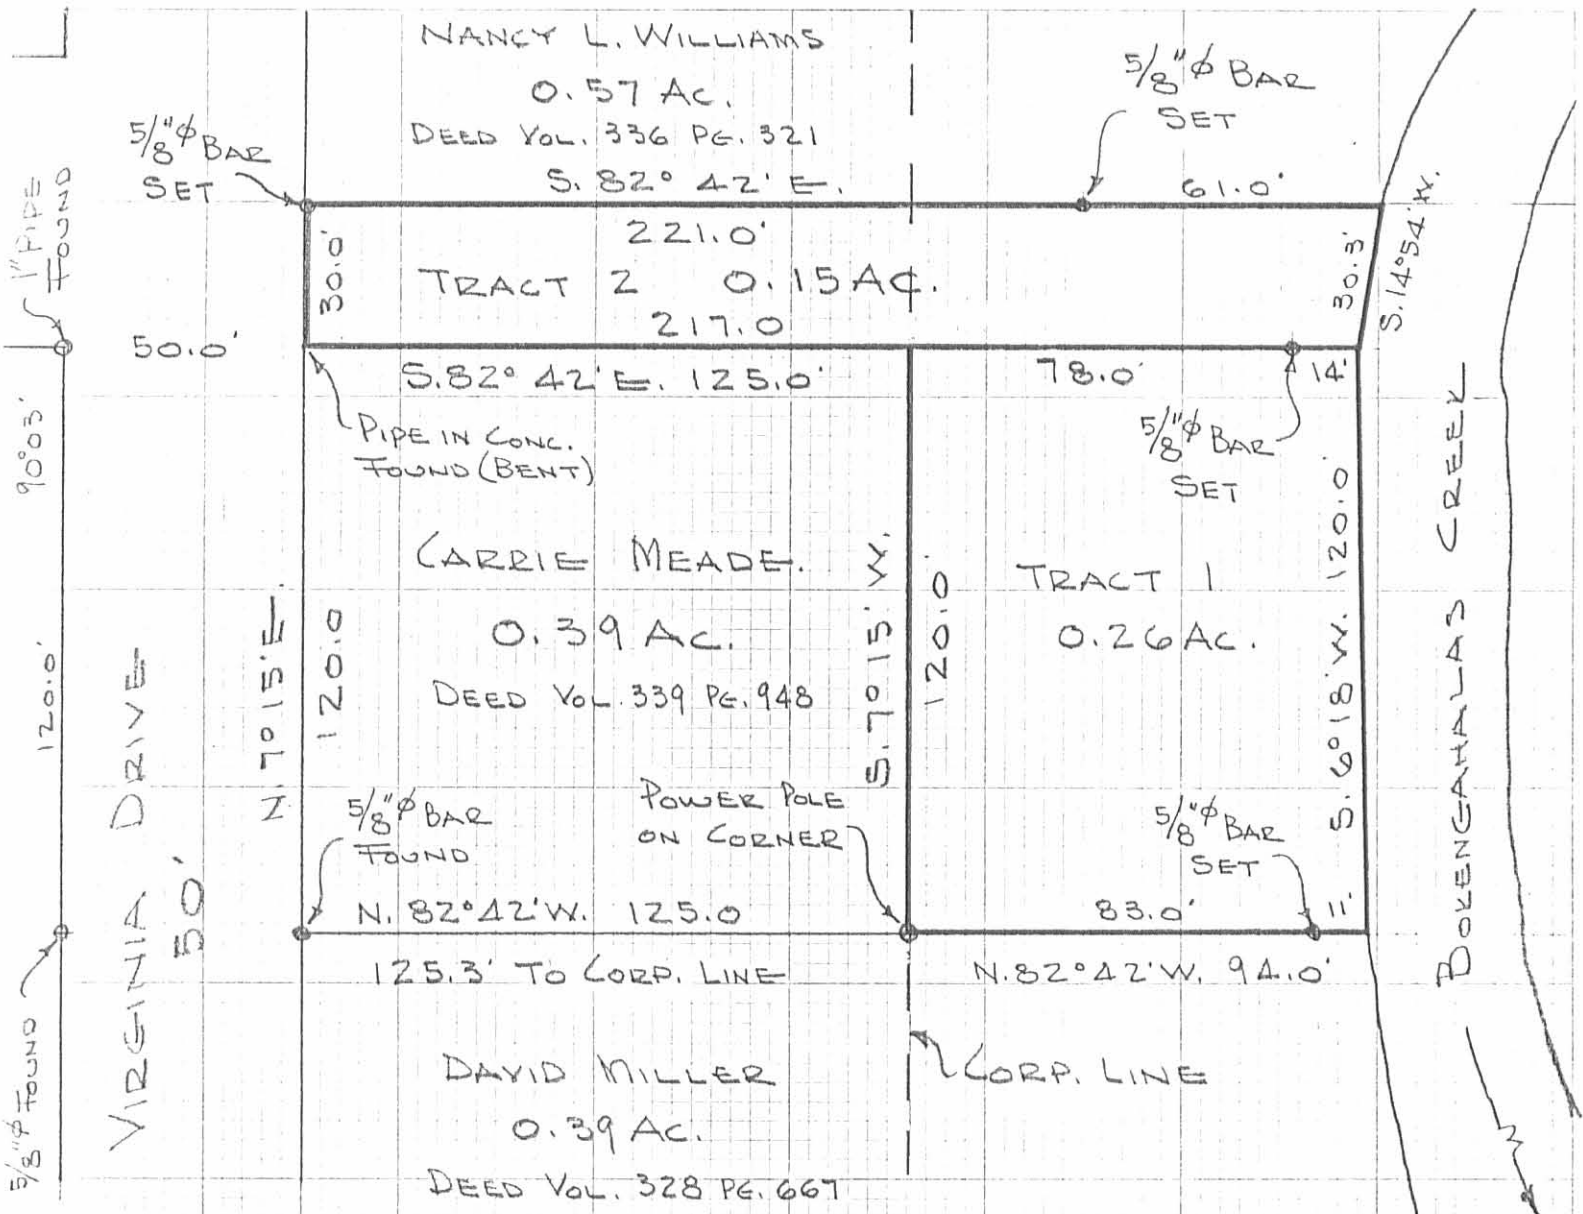 NANCY L. WILLIAMS
0.57 AC.
DEED VOL. 336 PG. 321
S. 82° 42' E.
5/8"φ BAR
SET
61.0'
5/8"φ BAR
SET
1" PIPE
FOUND
221.0'
30.0'
TRACT 2 0.15 AC.
217.0
30.3'
S. 14°54' W.
50.0'
S. 82° 42' E. 125.0'
78.0'
14'
PIPE IN CONC.
FOUND (BENT)
5/8"φ BAR
SET
90°03'
120.0'
CARRIE MEADE.
0.39 AC.
DEED VOL. 339 PG. 948
N. 7° 15' E.
120.0
S. 7° 15' W.
120.0'
TRACT 1
0.26 AC.
S. 6° 18' W. 120.0'
BOKENGAHALAS CREEK
VIRGINIA DRIVE
50'
5/8"φ BAR
FOUND
POWER POLE
ON CORNER
5/8"φ BAR
SET
N. 82°42' W. 125.0
83.0'
11'
125.3' TO CORP. LINE
N. 82°42' W. 94.0'
5/8"φ FOUND
DAVID MILLER
0.39 AC.
DEED VOL. 328 PG. 667
CORP. LINE